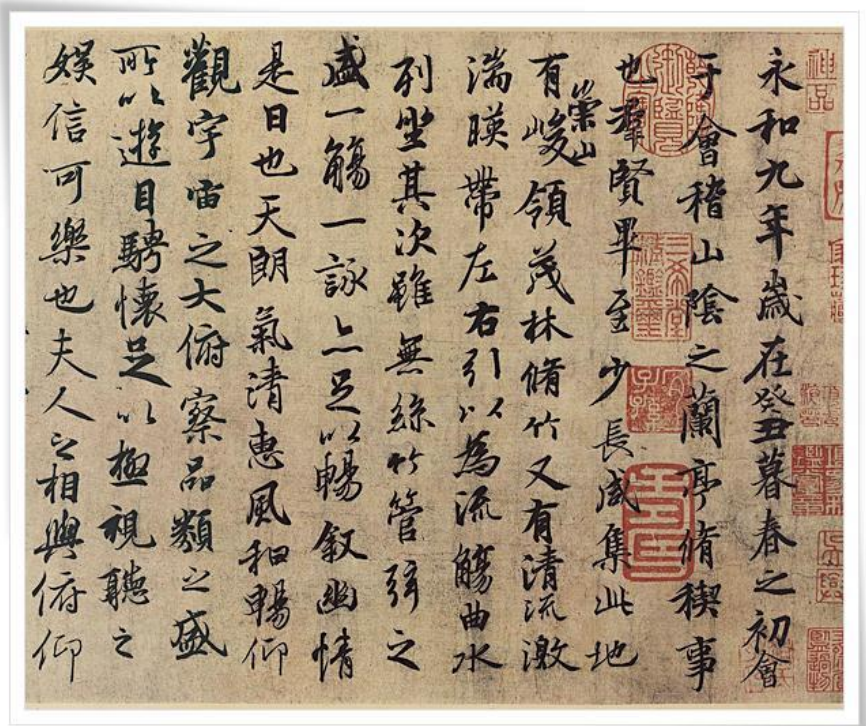 神品
永和九年歲在癸丑暮春之初會
于會稽山陰之蘭亭脩稧事
也羣賢畢至少長咸集此地
有崇山峻領茂林脩竹又有清流激
湍暎帶左右引以為流觴曲水
列坐其次雖無絲竹管弦之
盛一觴一詠亦足以暢敘幽情
是日也天朗氣清惠風和暢仰
觀宇宙之大俯察品類之盛
所以遊目騁懷足以極視聽之
娛信可樂也夫人之相與俯仰
三希堂精鑑璽
宜子孫